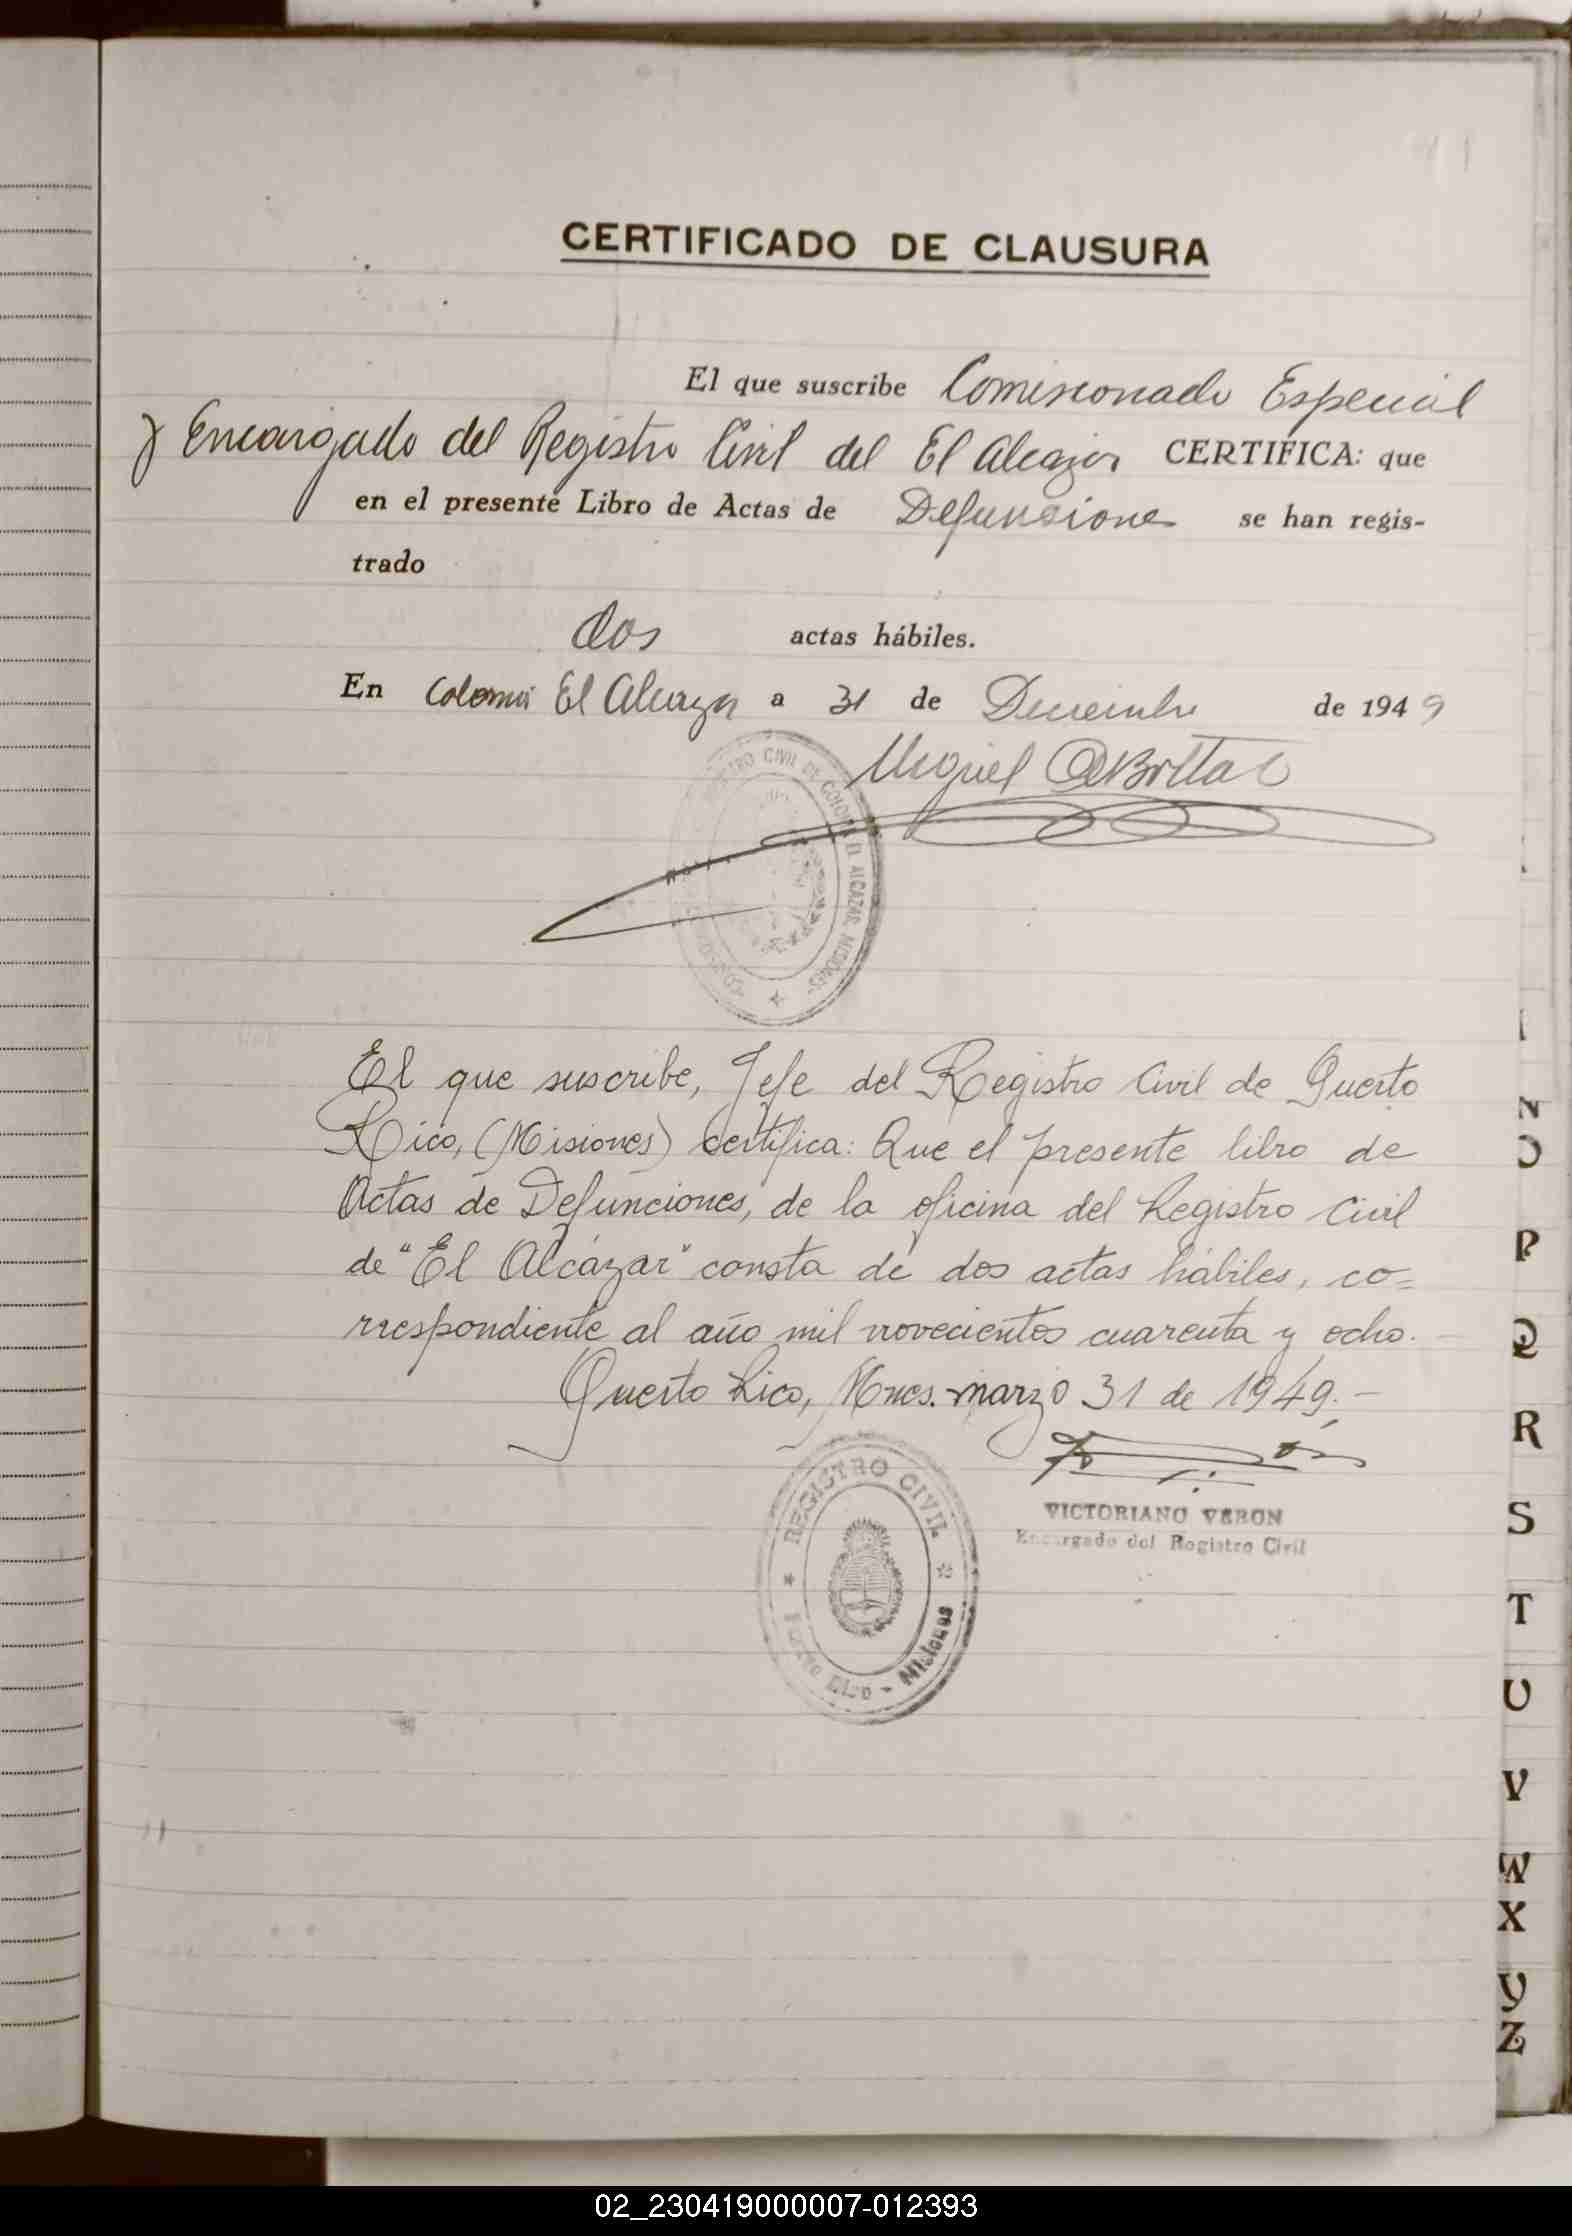 CERTIFICADO DE CLAUSURA
El que suscribe Comisionado Especial
y Encargado del Registro Civil del El Alcazar CERTIFICA: que
en el presente Libro de Actas de Defunciones se han regis-
trado
dos actas hábiles.
En Colonia El Alcazar a 31 de Diciembre de 1949
Miguel
REGISTRO CIVIL DE COLONIA EL ALCAZAR, MISIONES
El que suscribe, Jefe del Registro Civil de Puerto
Rico, (Misiones) certifica: Que el presente libro de
Actas de Defunciones, de la oficina del Registro Civil
de "El Alcázar" consta de dos actas hábiles, co=
rrespondiente al año mil novecientos cuarenta y ocho.
Puerto Rico, Mnes. marzo 31 de 1949.-
VICTORIANO VERON
Encargado del Registro Civil
REGISTRO CIVIL
Puerto Rico - Misiones
N
O
P
Q
R
S
T
U
V
W
X
Y
Z
02_230419000007-012393